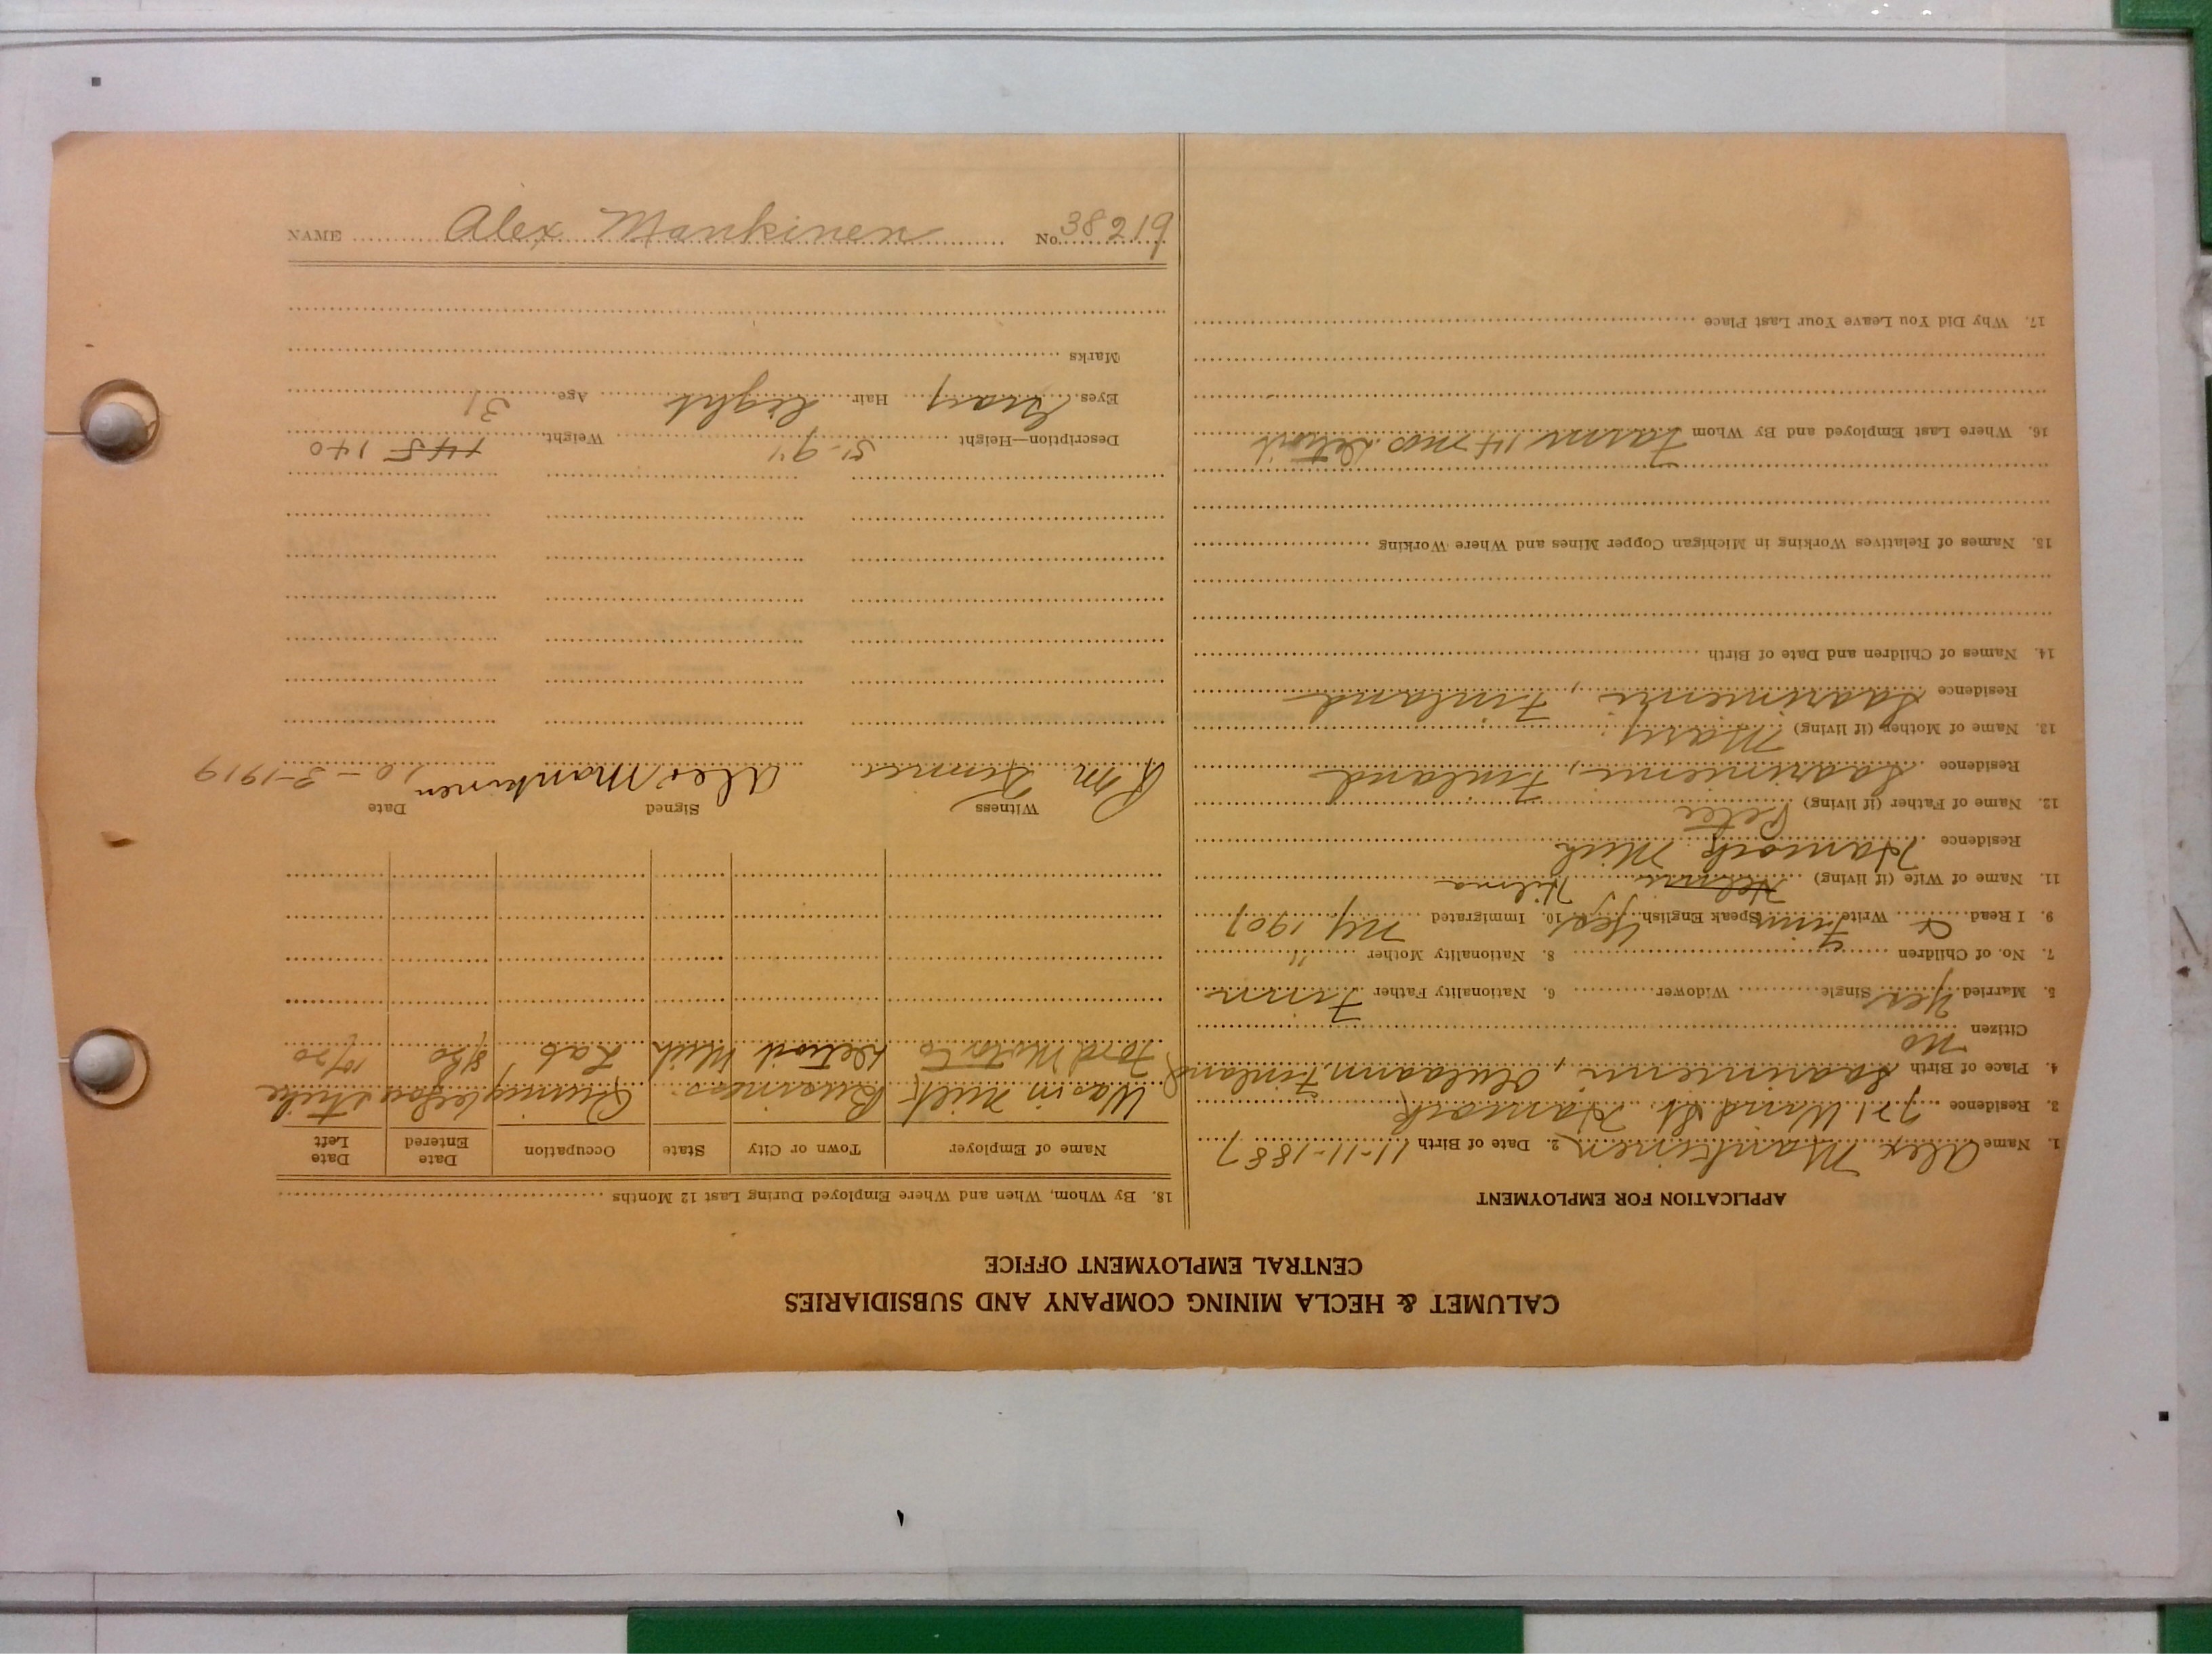 CALUMET & HECLA MINING COMPANY AND SUBSIDIARIES
CENTRAL EMPLOYMENT OFFICE
APPLICATION FOR EMPLOYMENT
1. Name Alex Mankinen 2. Date of Birth 11-11-1887
3. Residence 721 Wand St. Hancock
4. Place of Birth Saarimieni, Oulaann, Finland
Citizen no
5. Married yes Single Widower 6. Nationality Father Finn
7. No. of Children 8. Nationality Mother "
9. I Read & Write Finn Speak English yes 10. Immigrated NY 1907
11. Name of Wife (if living) Hilma
Residence Hancock Mich
12. Name of Father (if living) Peter
Residence Saarimieni, Finland
13. Name of Mother (if living) Mary
Residence Saarimieni, Finland
14. Names of Children and Date of Birth
15. Names of Relatives Working in Michigan Copper Mines and Where Working
16. Where Last Employed and By Whom Farm 14 mos Detroit
17. Why Did You Leave Your Last Place
18. By Whom, When and Where Employed During Last 12 Months
Name of Employer Town or City State Occupation Date Entered Date Left
Was in Milk Business. During before strike
Ford Motor Co Detroit Mich Lab 8/20 10/20
Witness Signed Date
Alex Mankinen 10-3-1919
Description—Height 5'-9" Weight 145 140
Eyes Gray Hair Light Age 31
Marks
NAME Alex Mankinen No. 38219